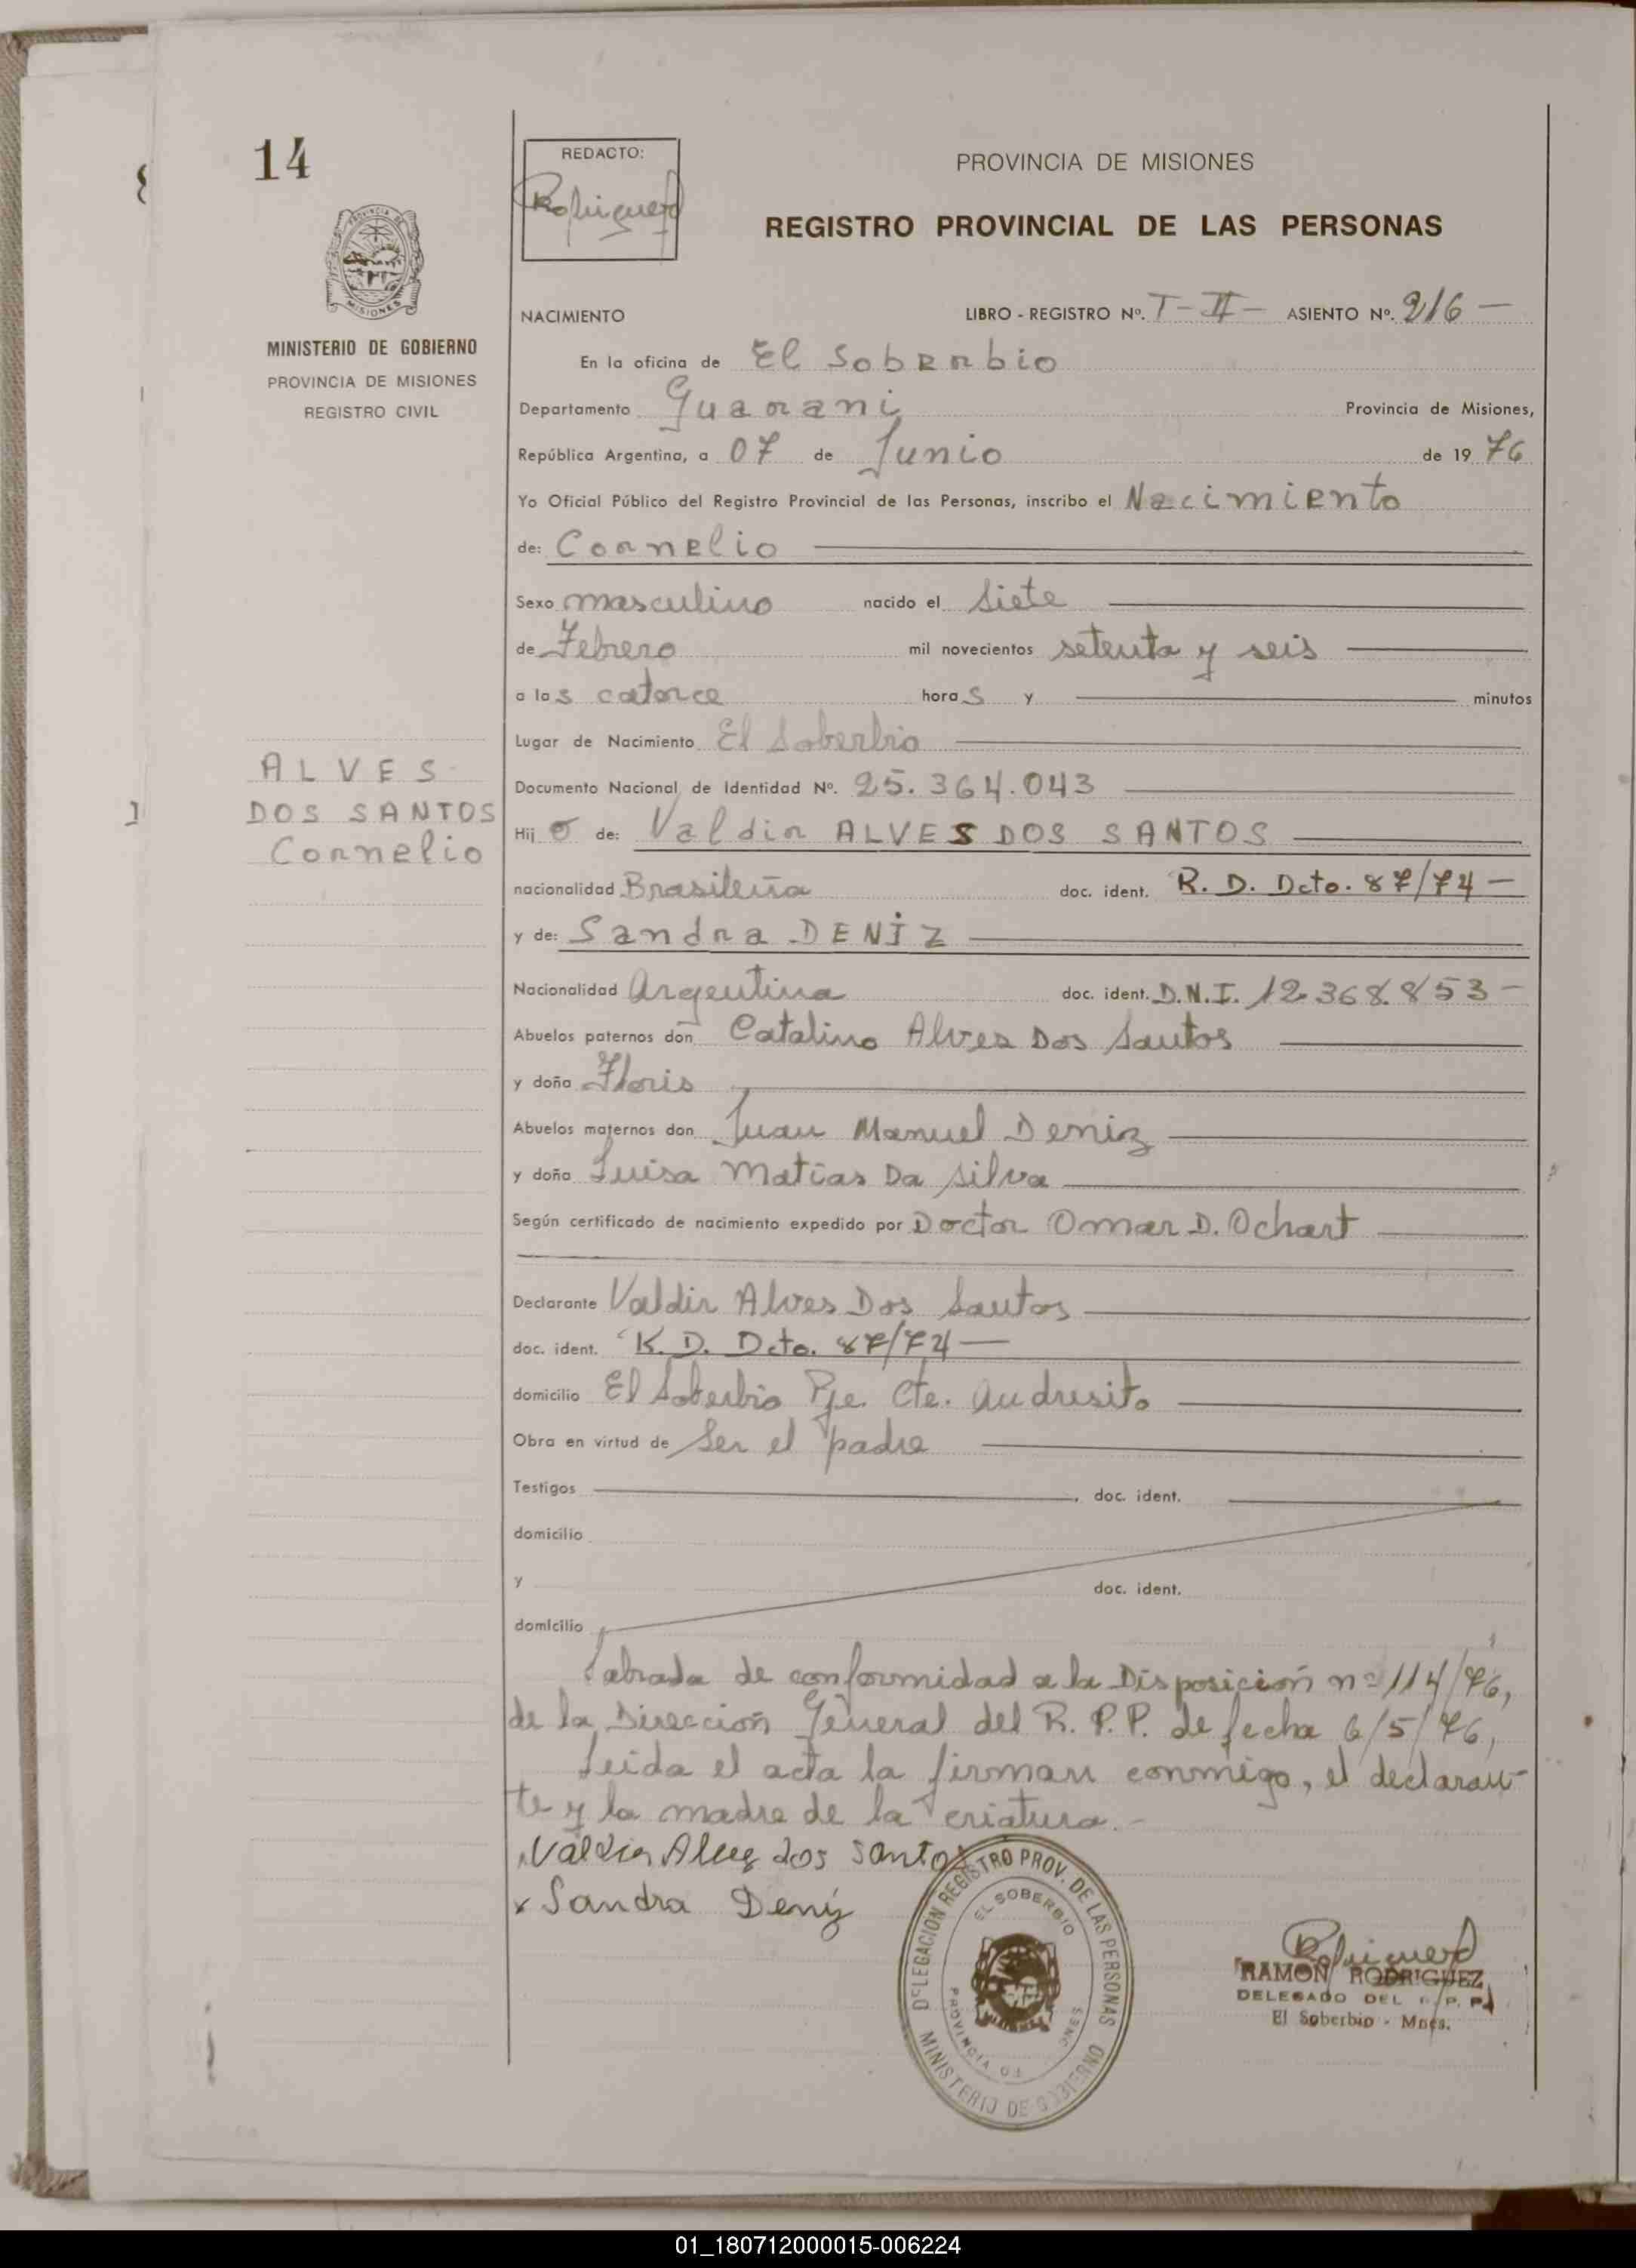 14
REDACTO:
Rodriguez
PROVINCIA DE MISIONES
REGISTRO PROVINCIAL DE LAS PERSONAS
PROVINCIA DE
MISIONES
MINISTERIO DE GOBIERNO
PROVINCIA DE MISIONES
REGISTRO CIVIL
NACIMIENTO LIBRO - REGISTRO Nº. T-II- ASIENTO Nº. 216 —
En la oficina de El Soberbio
Departamento Guarani Provincia de Misiones,
República Argentina, a 07 de Junio de 19 76
Yo Oficial Público del Registro Provincial de las Personas, inscribo el Nacimiento
de: Cornelio
Sexo masculino nacido el siete
de Febrero mil novecientos setenta y seis
a las catorce horas y minutos
Lugar de Nacimiento El Soberbio
ALVES
DOS SANTOS
Cornelio
Documento Nacional de Identidad Nº. 25.364.043
Hijo de: Valdir ALVES DOS SANTOS
nacionalidad Brasileña doc. ident. R. D. Dcto. 87/74 —
y de: Sandra DENIZ
Nacionalidad Argentina doc. ident. D.N.I. 12.368.853 —
Abuelos paternos don Catalino Alves Dos Santos
y doña Floris
Abuelos maternos don Juan Manuel Deniz
y doña Luisa Matias Da Silva
Según certificado de nacimiento expedido por Doctor Omar D. Ochart
Declarante Valdir Alves Dos Santos
doc. ident. R. D. Dcto. 87/74 —
domicilio El Soberbio Pje. Cte. Andresito
Obra en virtud de Ser el padre
Testigos , doc. ident.
domicilio
y doc. ident.
domicilio
Labrada de conformidad a la Disposición nº 114/76,
de la Dirección General del R. P. P. de fecha 6/5/76,
Leida el acta la firman conmigo, el declaran-
te y la madre de la criatura.-
Valdir Alves dos Santos
x Sandra Deniz
DELEGACION REGISTRO PROV. DE LAS PERSONAS
EL SOBERBIO
PROVINCIA DE
MINISTERIO DE GOBIERNO
Rodriguez
RAMON RODRIGUEZ
DELEGADO DEL R. P. P.
El Soberbio - Mnes.
01_180712000015-006224